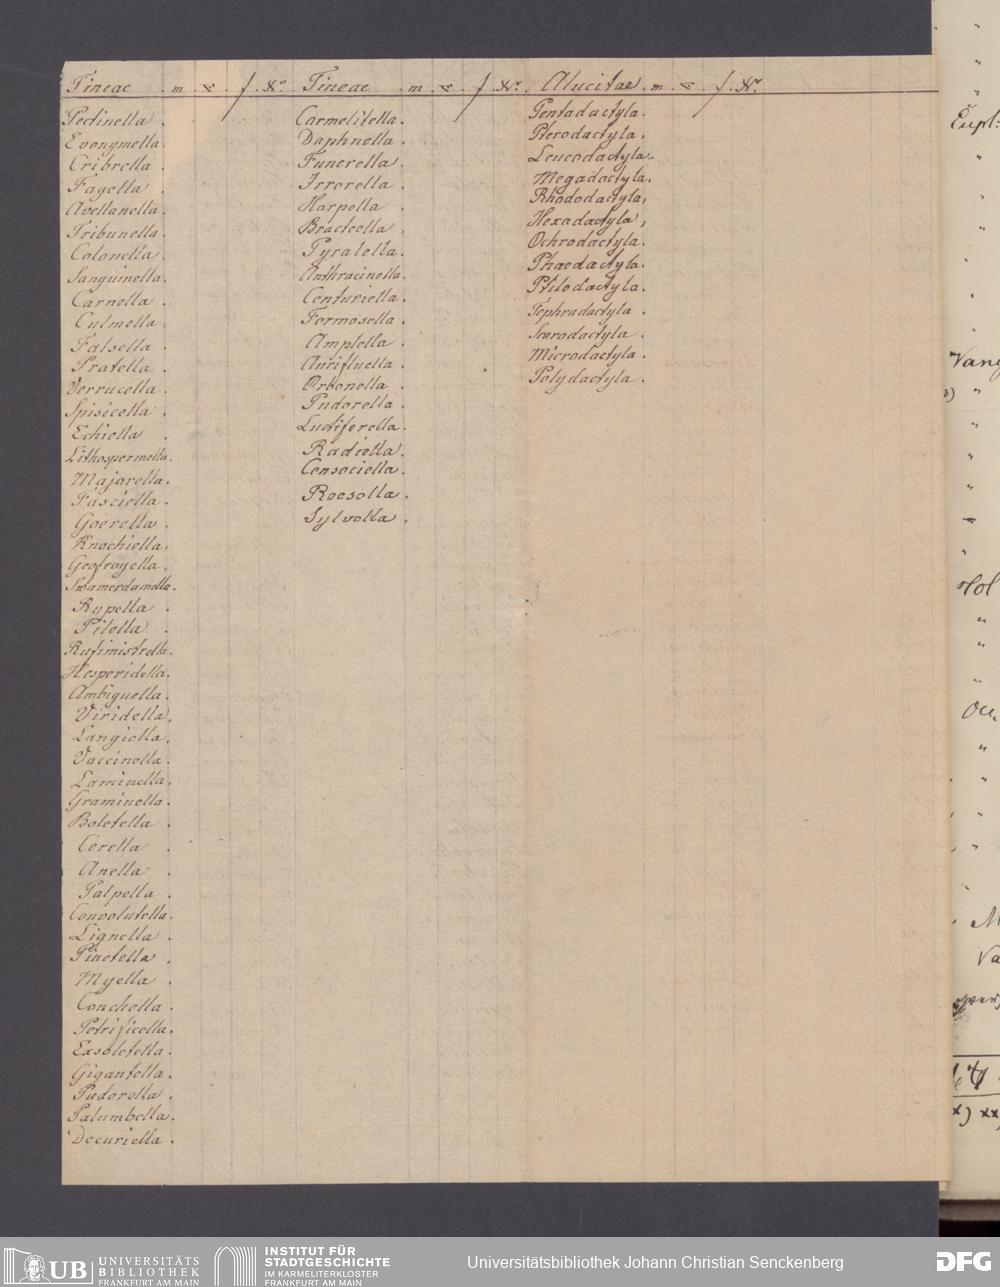 Tineae m f. No.
Pectinella.
Evonymella
Cribrella.
Fagella.
Avellanella.
Tribunella.
Colonella.
Sanguinella.
Carnella.
Culmella
Falsella.
Pratella.
Verrucella.
Spisicella.
Echiella.
Lithospermella.
Majorella.
Fasciella.
Goerella.
Knochiella.
Geofroyella.
Swamerdamella.
Rupella.
Pilella.
Rufimistrella.
Hesperidella.
Ambiguella.
Viridella.
Langiella.
Vaccinella.
Laminella.
Graminella.
Boletella.
Corella.
Anella.
Palpella.
Convolutella.
Lignella.
Pinetella.
Myella.
Conchella.
Petrificella.
Exsoletella.
Gigantella.
Pudorella.
Palumbella.
Decuriella.
Tineae m f. No.
Carmelitella.
Daphnella.
Funerella.
Irrorella.
Harpella.
Bracteella.
Pyralella.
Anthracinella.
Centuriella.
Formosella.
Amplella.
Aurifluella.
Orbonella.
Pudorella.
Luctiferella.
Radiella.
Consociella.
Roesella.
Sylvella.
Alucitae m f. No.
Pentadactyla.
Pterodactyla.
Leucodactyla.
Megadactyla.
Rhododactyla,
Hexadactyla,
Ochrodactyla.
Phaedactyla.
Ptilodactyla.
Tephradactyla.
Microdactyla.
Polydactyla.
Eupt:
UB UNIVERSITÄTS
BIBLIOTHEK
FRANKFURT AM MAIN
INSTITUT FÜR
STADTGESCHICHTE
IM KARMELITERKLOSTER
FRANKFURT AM MAIN
Universitätsbibliothek Johann Christian Senckenberg
DFG